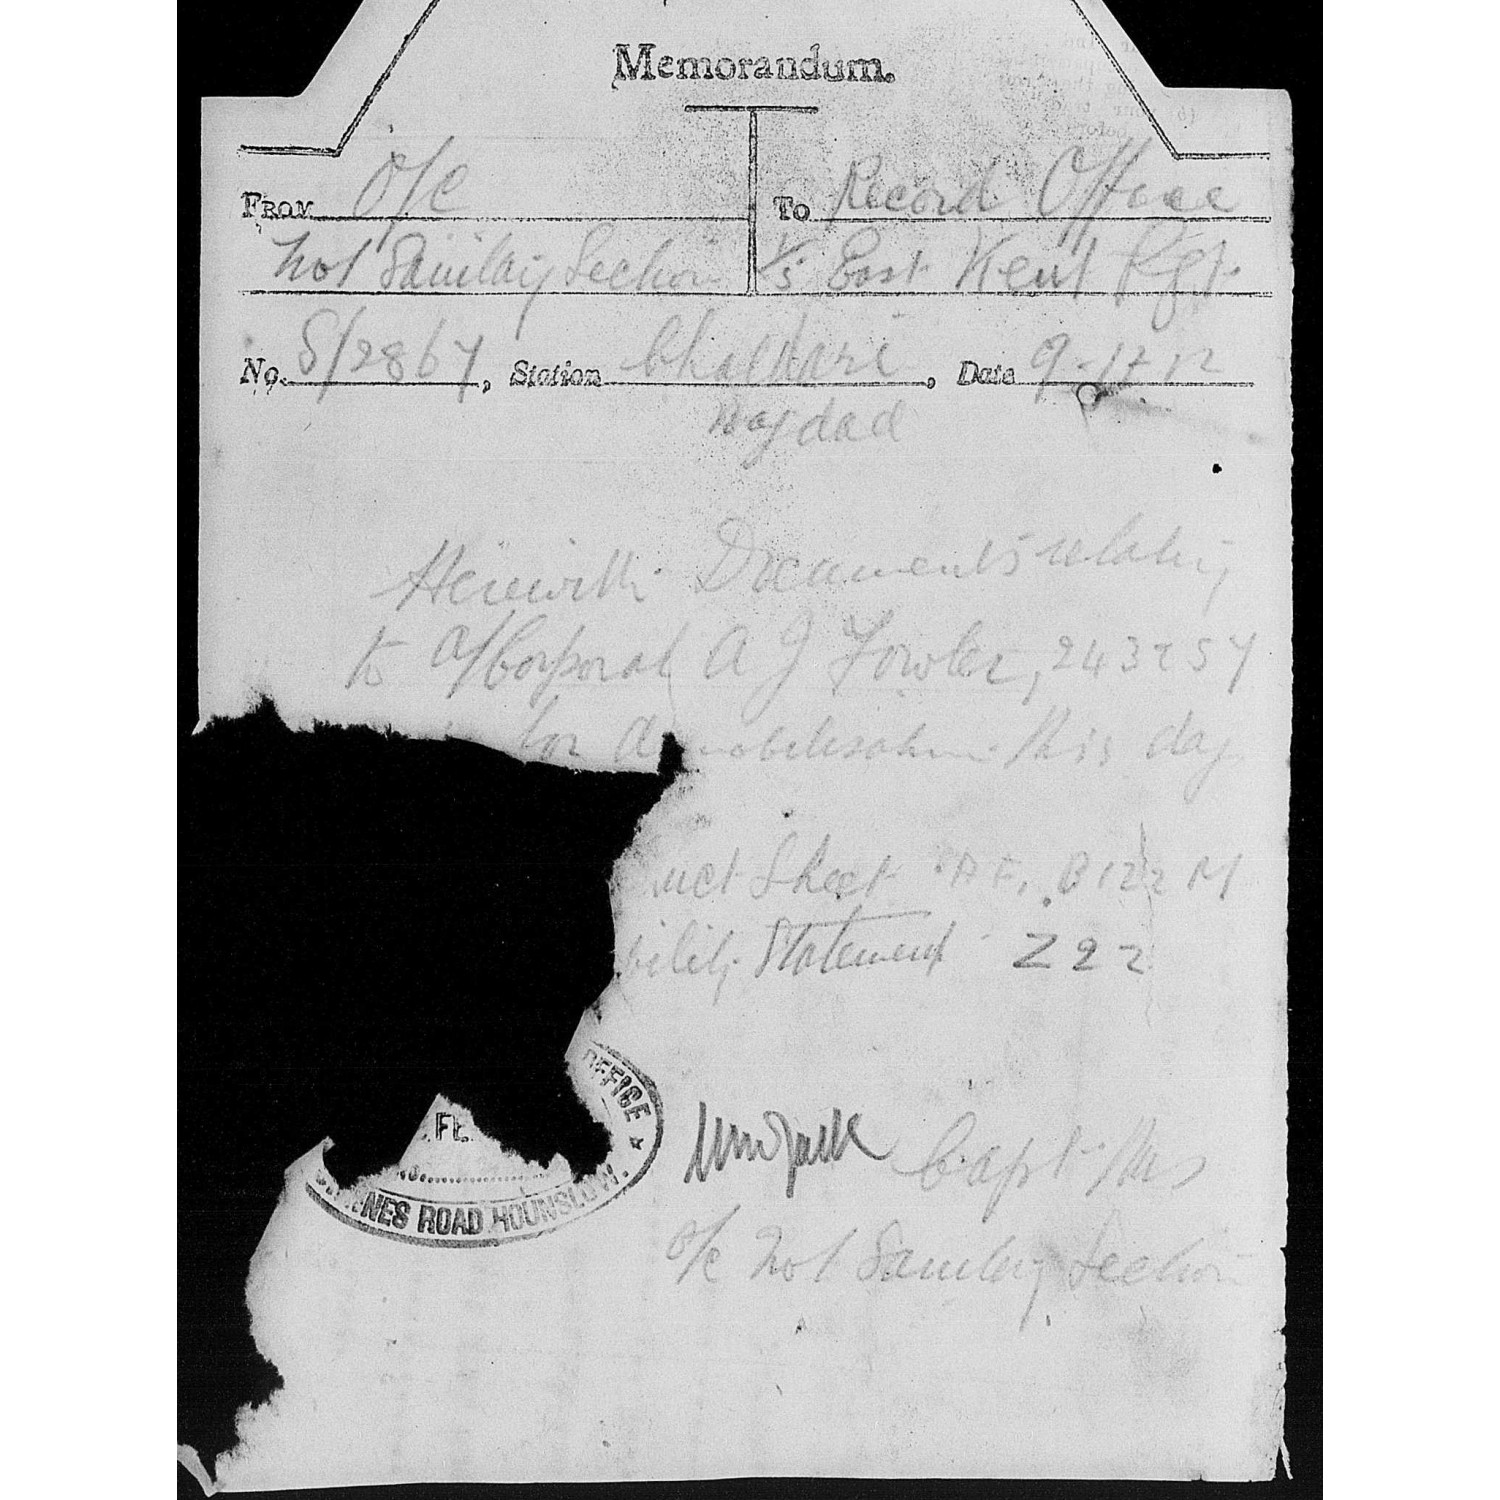 Memorandum.
From O/C To Record Office
No 1 Sanitary Section 1/5 East Kent Rgt.
No. S/2867, Station, Date
Bagdad
Herewith Documents relating
to A/Corporal A J Fowler, 243257
for demobilisation this day
uct Sheet A F. B 122 M
bility Statement Z 22
OFFICE
NES ROAD HOUNSLOW.
Capt.
o/c No 1 Sanitary Section